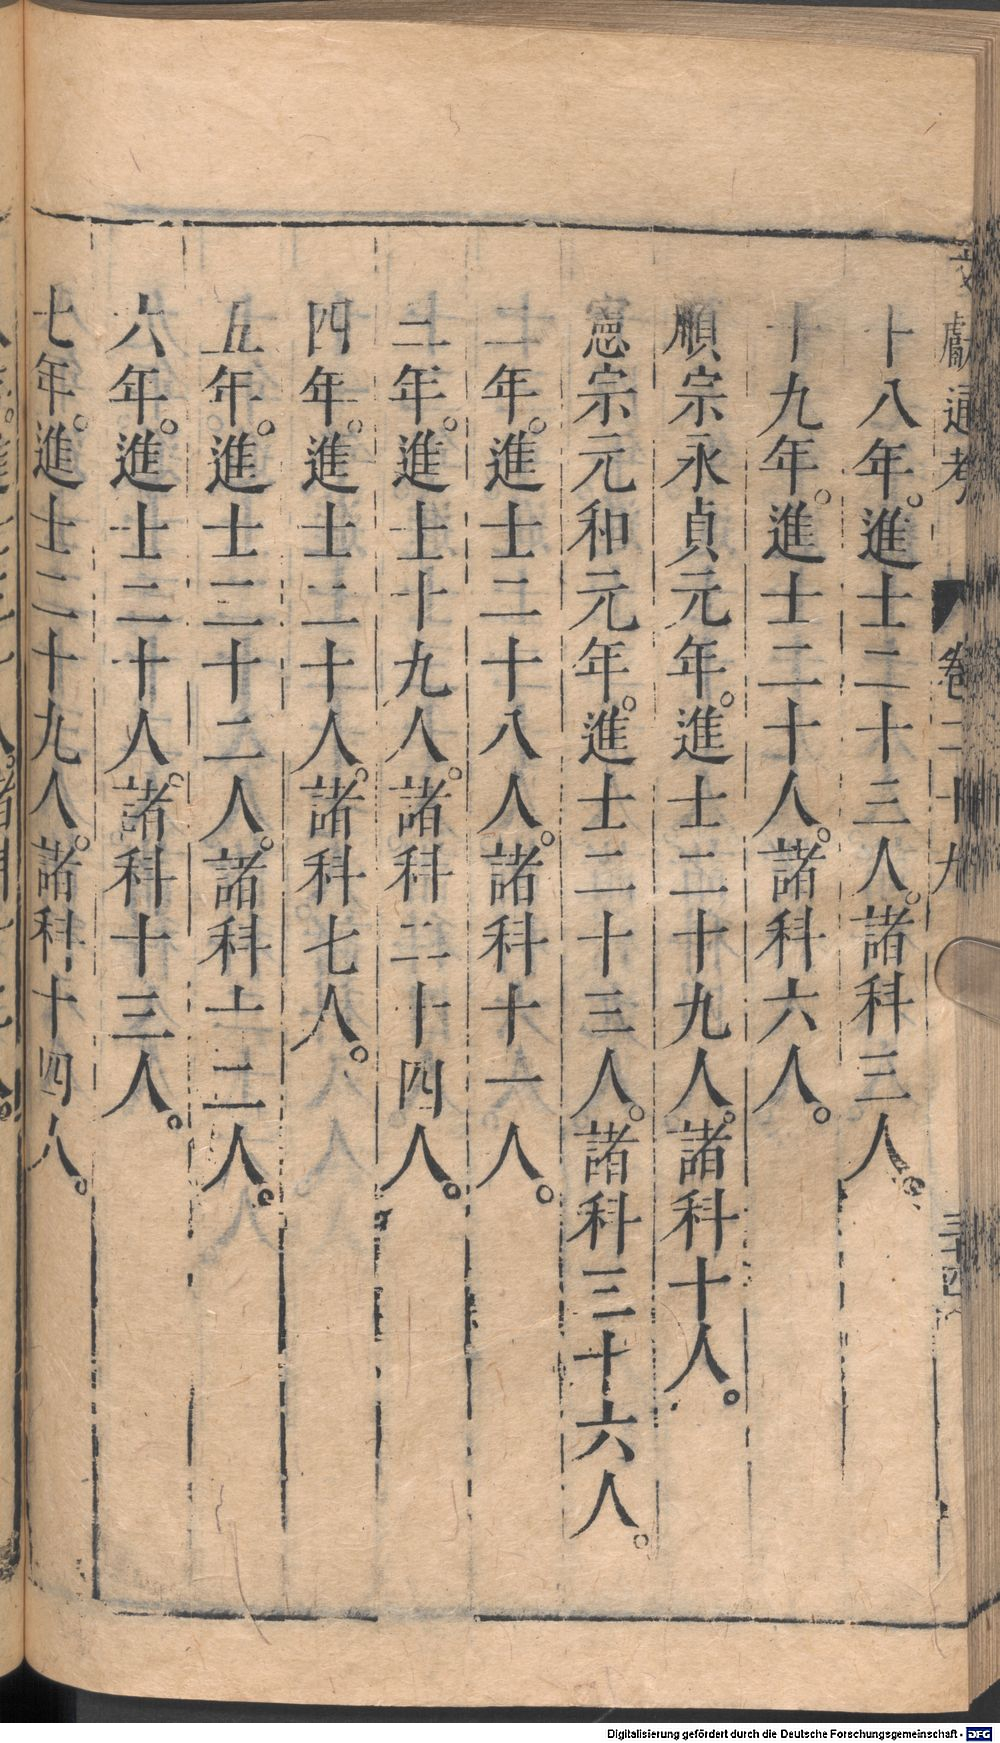 文獻通考 卷二十九 三十四
十八年。進士二十三人。諸科三人。
十九年。進士二十人。諸科六人。
順宗永貞元年。進士二十九人。諸科十人。
憲宗元和元年。進士二十三人。諸科三十六人。
二年。進士二十八人。諸科十一人。
三年。進士十九人。諸科二十四人。
四年。進士二十人。諸科七人。
五年。進士三十二人。諸科十二人。
六年。進士二十人。諸科十三人。
七年。進士二十九人。諸科十四人。
Digitalisierung gefördert durch die Deutsche Forschungsgemeinschaft - DFG